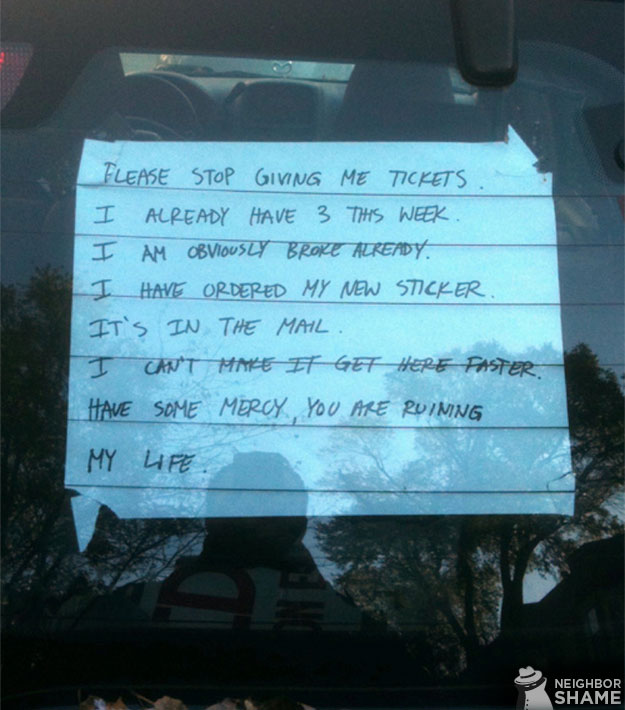 PLEASE STOP GIVING ME TICKETS.
I ALREADY HAVE 3 THIS WEEK.
I AM OBVIOUSLY BROKE ALREADY.
I HAVE ORDERED MY NEW STICKER.
IT'S IN THE MAIL.
I CAN'T MAKE IT GET HERE FASTER.
HAVE SOME MERCY, YOU ARE RUINING
MY LIFE.
NEIGHBOR
SHAME